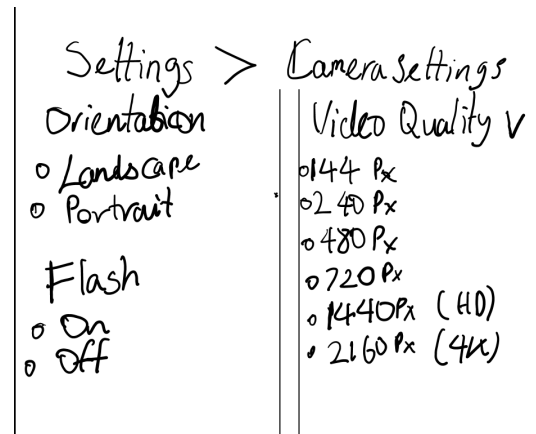 Settings > Camera Settings
Orientation
o Landscape
o Portrait
Flash
o On
o Off
Video Quality v
o 144 Px
o 240 Px
o 480 Px
o 720 Px
o 1440 Px (HD)
• 2160 Px (4K)